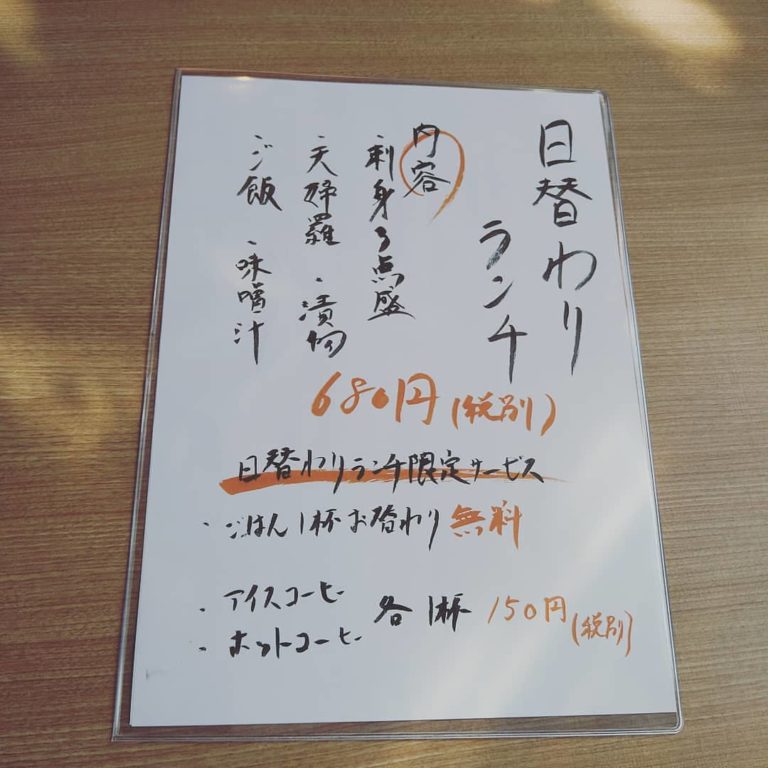 日替わり
ランチ
内容
・刺身3点盛
・天婦羅 ・漬物
・ご飯 ・味噌汁
680円(税別)
日替わりランチ限定サービス
・ごはん1杯お替わり無料
・アイスコーヒー
・ホットコーヒー
各1杯 150円(税別)